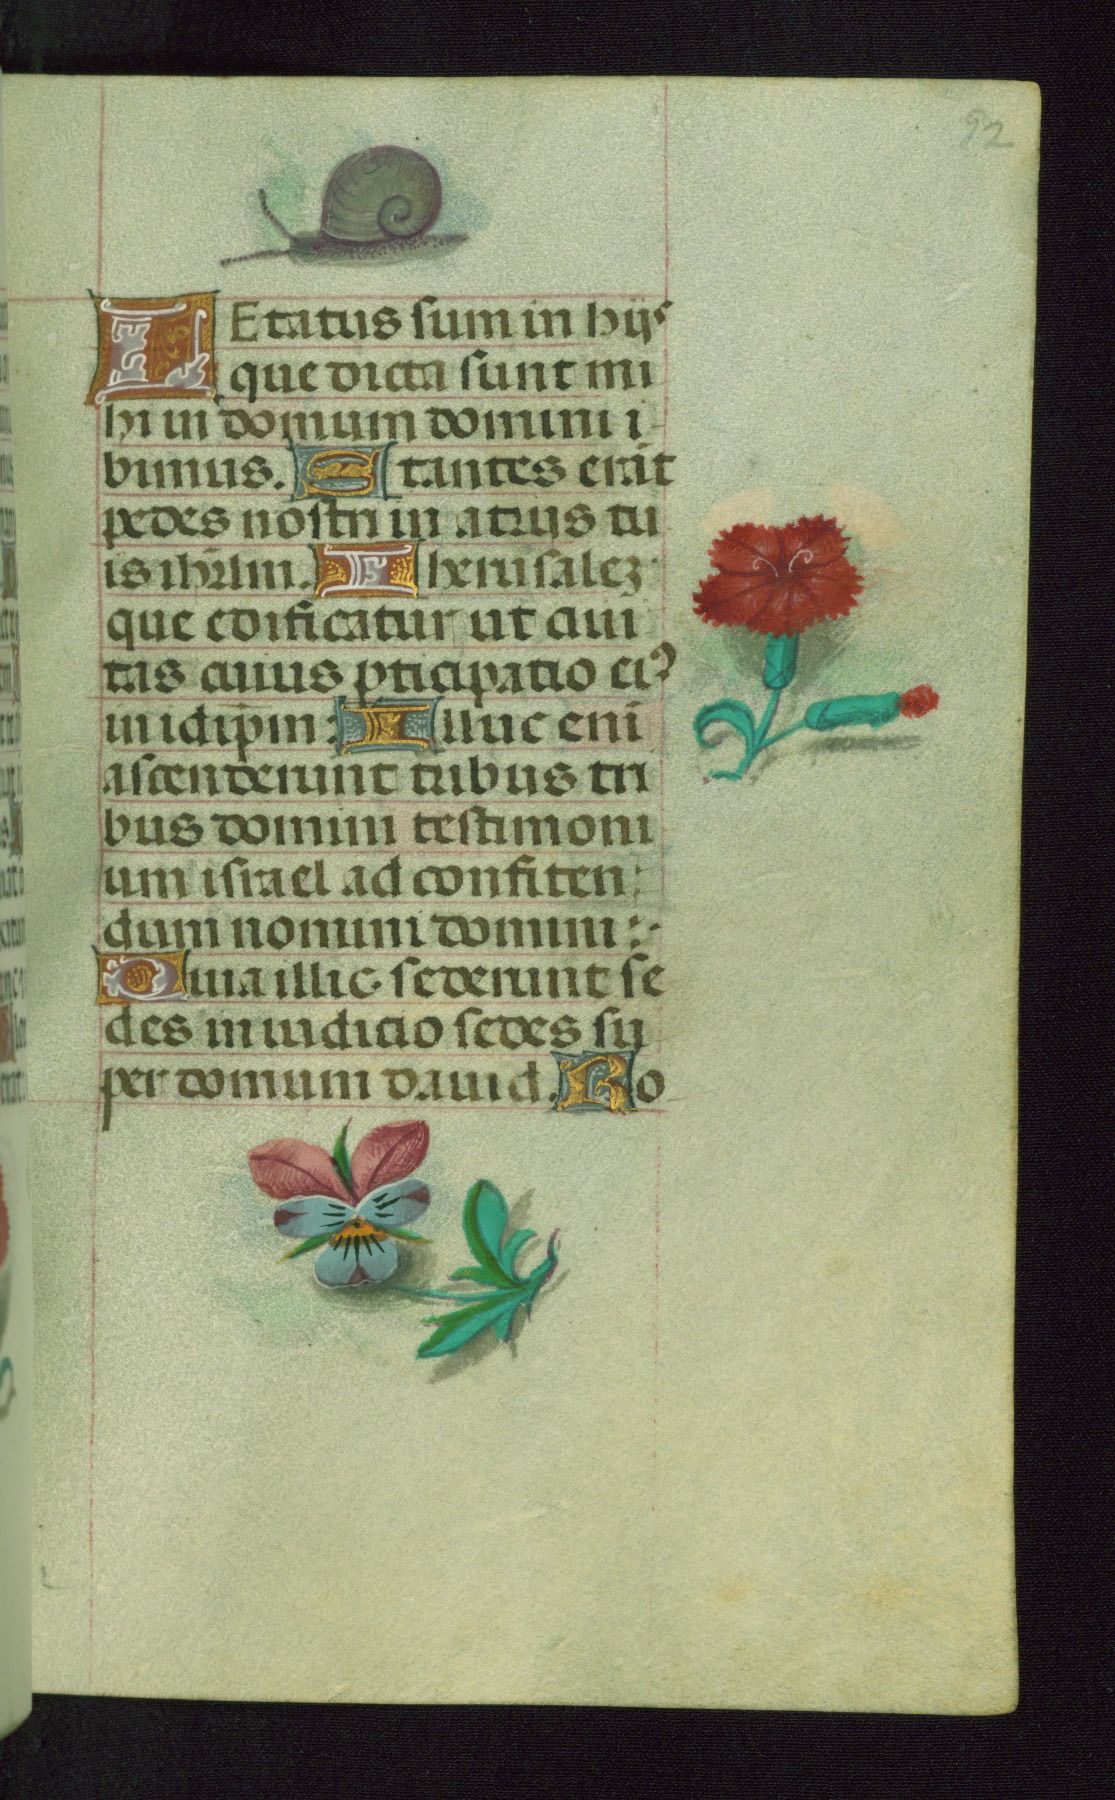 92
LEtatus sum in hijs
que dicta sunt mi
hi in domum domini i
bimus. Stantes erāt
pedes nostri in atrijs tu
is ihrlm. Iherusalez
que edificatur ut ciui
tas cuius pticipatio eiꝰ
in idipm: Illuc eni
ascenderunt tribus tri
bus domini testimoni
um israel ad confiten
dum nomini domini:
Quia illic sederunt se
des in iudicio sedes su
per domum dauid. Ro